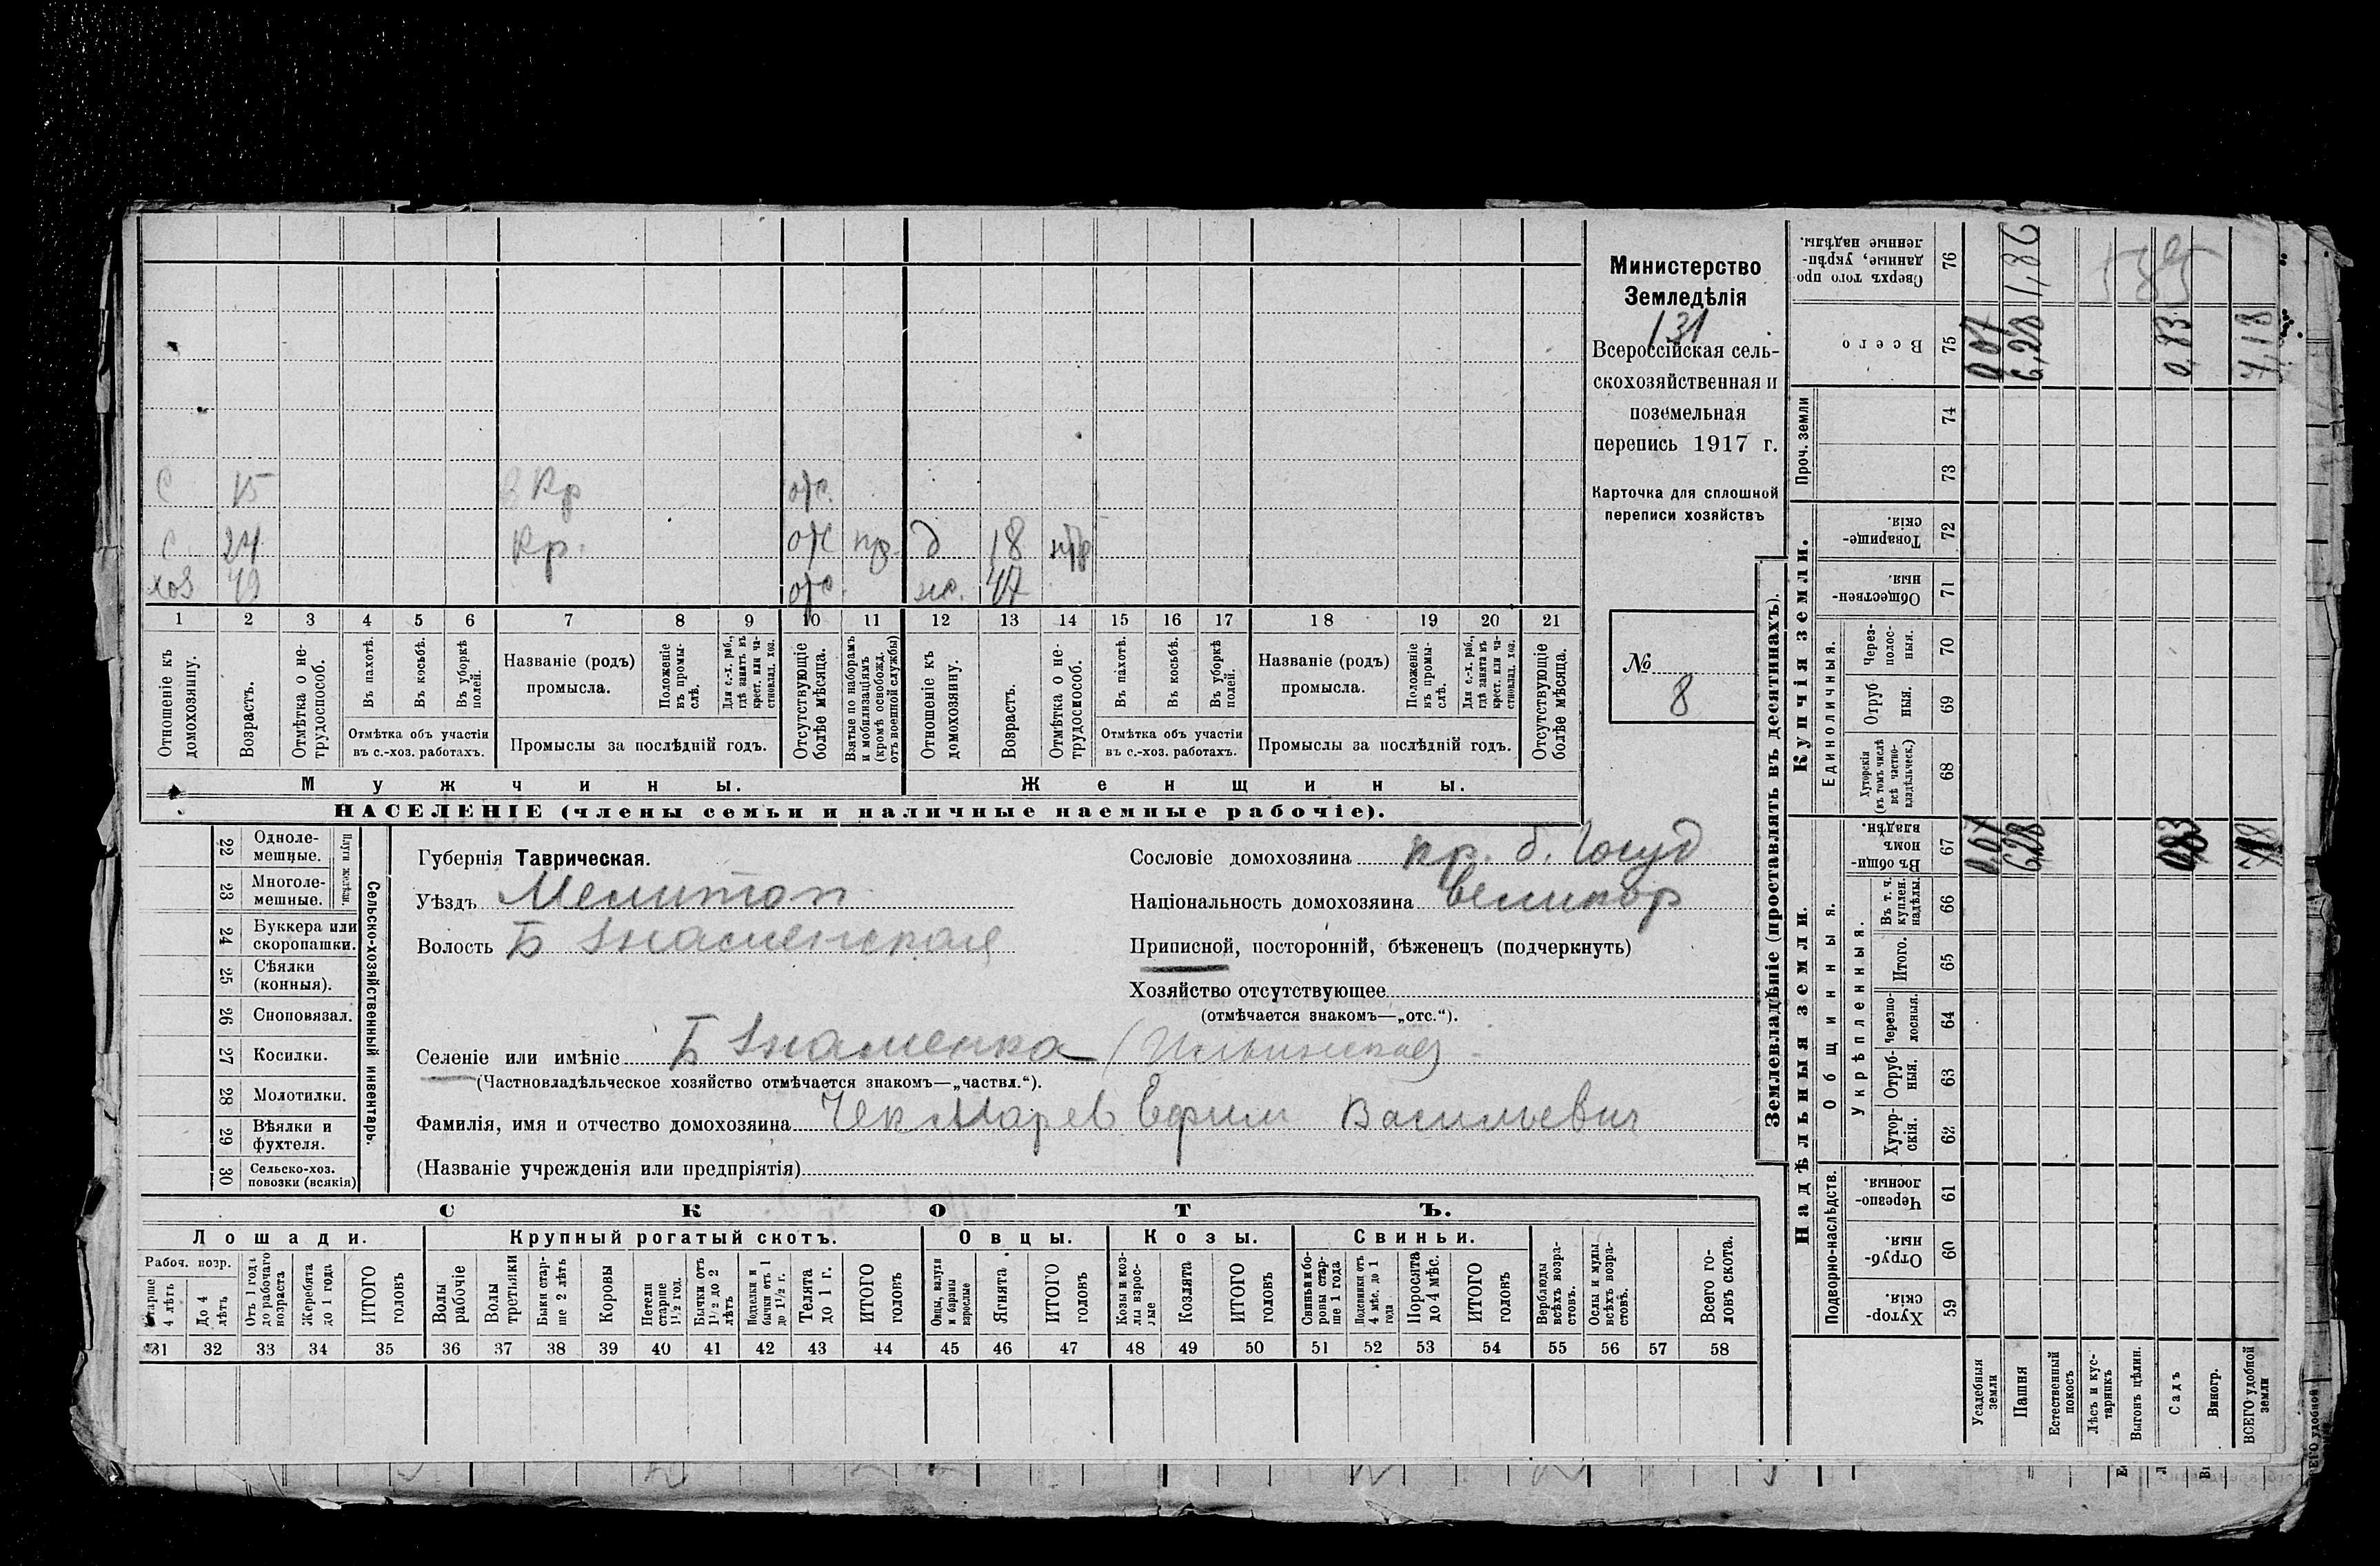 Министерство
Земледѣлія
131
Всероссійская сель-
скохозяйственная и
поземельная
перепись 1917 г.
Карточка для сплошной
переписи хозяйствъ
№ 8
с 15 Кр отс.
с 24 Кр. отс пр. д 18
хоз 49 отс. ж. 47
1 2 3 4 5 6 7 8 9 10 11 12 13 14 15 16 17 18 19 20 21
Отношеніе къ домохозяину.
Возрастъ.
Отмѣтка о не-трудоспособ.
Въ пахотѣ.
Въ косьбѣ.
Въ уборкѣ полей.
Отмѣтка объ участіи въ с.-хоз. работахъ.
Названіе (родъ) промысла.
Положеніе въ промы-слѣ.
Для с.-х. раб., гдѣ занятъ въ крест. или ча-стновлад. хоз.
Промыслы за послѣдній годъ.
Отсутствующіе болѣе мѣсяца.
Взятые по наборамъ и мобилизаціямъ (кромѣ освобожд. отъ военной службы)
Отношеніе къ домохозяину.
Возрастъ.
Отмѣтка о не-трудоспособ.
Въ пахотѣ.
Въ косьбѣ.
Въ уборкѣ полей.
Отмѣтка объ участіи въ с.-хоз. работахъ.
Названіе (родъ) промысла.
Положеніе въ промы-слѣ.
Для с.-х. раб., гдѣ занята въ крест. или ча-стновлад. хоз.
Промыслы за послѣдній годъ.
Отсутствующіе болѣе мѣсяца.
Мужчины. Женщины.
НАСЕЛЕНІЕ (члены семьи и наличные наемные рабочіе).
22 Одноле-мешные.
23 Многоле-мешные.
Плуги желѣзн.
24 Буккера или скоропашки.
25 Сѣялки (конныя).
26 Сноповязал.
27 Косилки.
28 Молотилки.
29 Вѣялки и фухтеля.
30 Сельско-хоз. повозки (всякія)
Сельско-хозяйственный инвентарь.
Губернія Таврическая.
Уѣздъ Мелитоп
Волость Б Знаменская
Сословіе домохозяина кр. б. Госуд
Національность домохозяина великор
Приписной, посторонній, бѣженецъ (подчеркнуть)
Хозяйство отсутствующее
(отмѣчается знакомъ—„отс.“).
Селеніе или имѣніе Б Знаменка (Ильинская)
(Частновладѣльческое хозяйство отмѣчается знакомъ—„частвл.“).
Фамилія, имя и отчество домохозяина Чекмарев Ефим Васильевич
(Названіе учрежденія или предпріятія)
СКОТЪ.
Лошади. Крупный рогатый скотъ. Овцы. Козы. Свиньи.
Рабоч. возр.
Старше 4 лѣтъ
До 4 лѣтъ
Отъ 1 года до рабочаго возраста
Жеребята до 1 года
ИТОГО головъ
Волы рабочіе
Волы третьяки
Быки стар-ше 2 лѣтъ
Коровы
Нетели старше 1½ год.
Бычки отъ 1½ до 2 лѣтъ
Подтелки и бычки отъ 1 до 1½ г.
Телята до 1 г.
ИТОГО головъ
Овцы, валухи и бараны взрослые
Ягнята
ИТОГО головъ
Козы и коз-лы взрос-лые
Козлята
ИТОГО головъ
Свиньи и бо-ровы стар-ше 1 года
Подсвинки отъ 4 мѣс. до 1 года
Поросята до 4 мѣс.
ИТОГО головъ
Верблюды всѣхъ возра-стовъ.
Ослы и мулы всѣхъ возра-стовъ.
Всего го-ловъ скота.
31 32 33 34 35 36 37 38 39 40 41 42 43 44 45 46 47 48 49 50 51 52 53 54 55 56 57 58
Землевладѣніе (проставлять въ десятинахъ).
Надѣльныя земли. Купчія земли. Проч. земли
Подворно-наслѣдств.
Общинныя.
Укрѣпленныя.
Единоличныя.
Хутор-скія. 59
Отруб-ныя. 60
Черезпо-лосныя. 61
Хутор-скія. 62
Отруб-ныя. 63
Черезпо-лосныя. 64
Итого. 65
Въ т. ч. куплен. надѣлы. 66
Въ общи-номъ владѣн. 67
Хуторскія (въ томъ числѣ всѣ частно-владѣльческ.) 68
Отруб-ныя. 69
Через-полос-ныя. 70
Обществен-ныя. 71
Товарище-скія. 72
73
74
Всего 75
Сверхъ того про-данные, укрѣп-ленные надѣлы. 76
Усадебныя земли 0,07 0,07
Пашня 6,28 6,28 1,86
Естественный покосъ
Лѣсъ и кус-тарникъ
Выгонъ цѣлин.
Садъ 0,83 0,83
Виногр.
ВСЕГО удобной земли 7,18 7,18
585